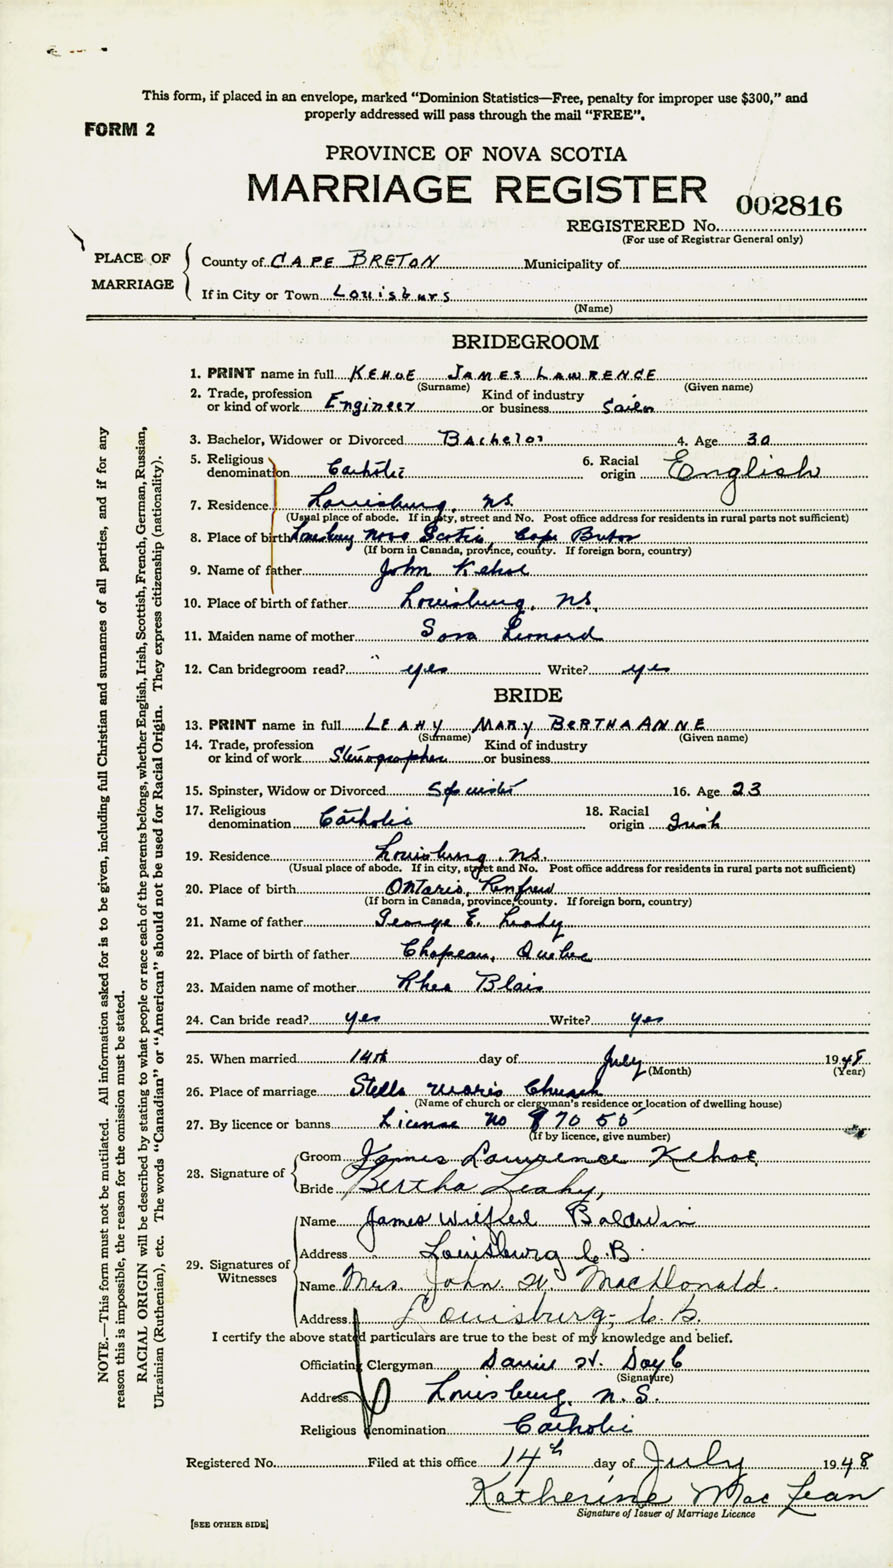 This form, if placed in an envelope, marked "Dominion Statistics—Free, penalty for improper use $300," and
properly addressed will pass through the mail "FREE".
FORM 2
PROVINCE OF NOVA SCOTIA
MARRIAGE REGISTER
002816
REGISTERED No.
(For use of Registrar General only)
PLACE OF MARRIAGE
County of CAPE BRETON Municipality of
If in City or Town Louisburg
(Name)
BRIDEGROOM
1. PRINT name in full KEHOE JAMES LAWRENCE
(Surname) (Given name)
2. Trade, profession or kind of work Engineer Kind of industry or business Sailor
3. Bachelor, Widower or Divorced Bachelor 4. Age 30
5. Religious denomination Catholic 6. Racial origin English
7. Residence Louisburg, NS
(Usual place of abode. If in city, street and No. Post office address for residents in rural parts not sufficient)
8. Place of birth Louisburg Nova Scotia, Cape Breton
(If born in Canada, province, county. If foreign born, country)
9. Name of father John Kehoe
10. Place of birth of father Louisburg, NS.
11. Maiden name of mother Leonard
12. Can bridegroom read? yes Write? yes
BRIDE
13. PRINT name in full LEAHY MARY BERTHA ANNE
(Surname) (Given name)
14. Trade, profession or kind of work Stenographer Kind of industry or business
15. Spinster, Widow or Divorced Spinster 16. Age 23
17. Religious denomination Catholic 18. Racial origin Irish
19. Residence Louisburg, NS.
(Usual place of abode. If in city, street and No. Post office address for residents in rural parts not sufficient)
20. Place of birth Ontario, Renfrew
(If born in Canada, province, county. If foreign born, country)
21. Name of father George E. Leahy
22. Place of birth of father Chapeau, Quebec
23. Maiden name of mother Rhea Blair
24. Can bride read? yes Write? yes
25. When married 14th day of July 1948
(Month) (Year)
26. Place of marriage Stella Maris Church
(Name of church or clergyman's residence or location of dwelling house)
27. By licence or banns License No 97055
(If by licence, give number)
28. Signature of Groom James Lawrence Kehoe
Bride Bertha Leahy,
29. Signatures of Witnesses
Name James Wilfred Baldwin
Address Louisburg C.B.
Name Mrs. John W. MacDonald.
Address Louisburg, C.B.
I certify the above stated particulars are true to the best of my knowledge and belief.
Officiating Clergyman H. Doyle
(Signature)
Address Louisburg, N.S.
Religious denomination Catholic
Registered No. Filed at this office 14th day of July 1948
Katherine MacLean
Signature of Issuer of Marriage Licence
[SEE OTHER SIDE]
NOTE.—This form must not be mutilated. All information asked for is to be given, including full Christian and surnames of all parties, and if for any
reason this is impossible, the reason for the omission must be stated.
RACIAL ORIGIN will be described by stating to what people or race each of the parents belongs, whether English, Irish, Scottish, French, German, Russian,
Ukrainian (Ruthenian), etc. The words "Canadian" or "American" should not be used for Racial Origin. They express citizenship (nationality).